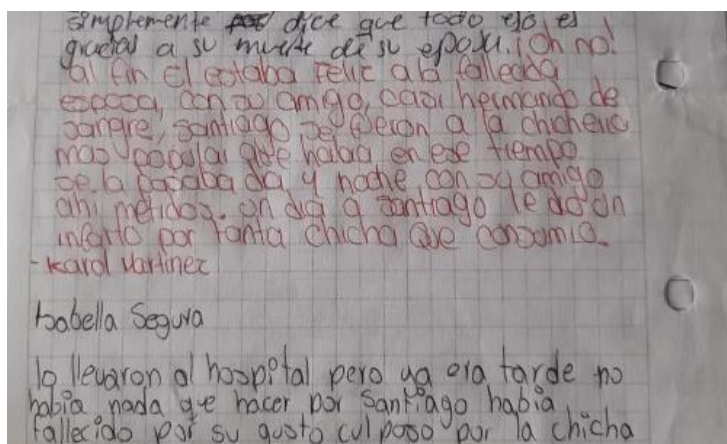 simplemente dice que todo eso es
gracias a su muerte de su eposa. ¡Oh no!
al fin El estaba Feliz a la falleada
esposa, con su amigo, casi hermando de
sangre, santiago se fieron a la chicheria
mas popular que habia en ese tiempo
se la pasaba dia y noche con su amigo
ahi metidos. un dia a santiago le dio un
infarto por tanta chicha que consumia.
- Karol Martinez
Isabella Segura
lo llevaron al hospital pero ya era tarde no
habia nada que hacer por Santiago habia
fallecido por su gusto culposo por la chicha